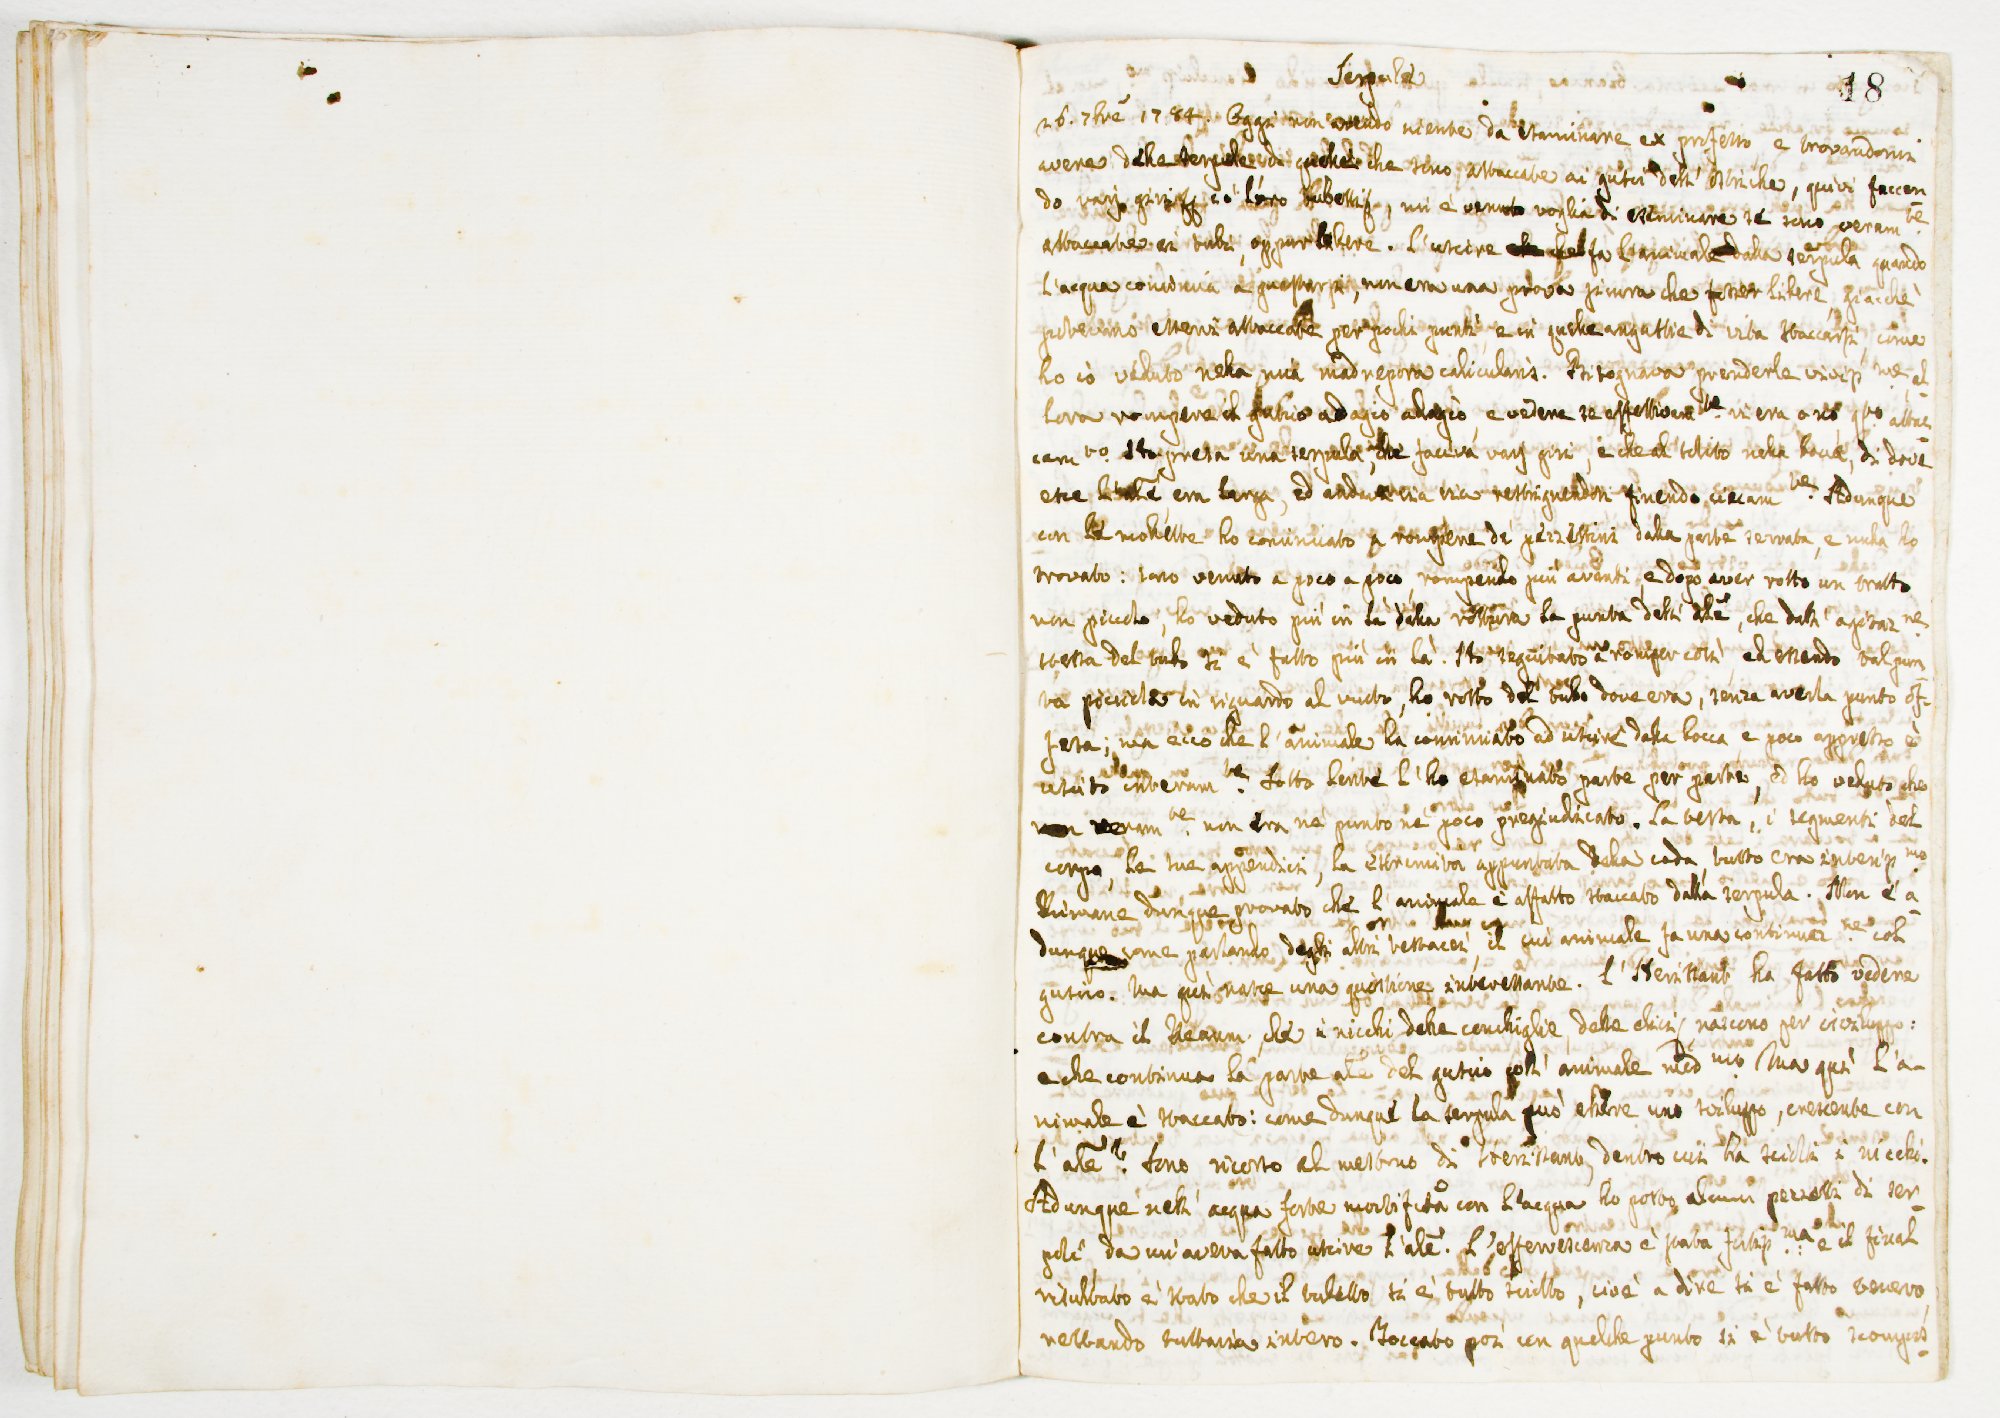 Serpule
18
26. 7bre 1784. Oggi non avendo niente da esaminare ex professo e trovandomi
avere delle serpule di quelle che sono attaccate ai gusci dell' ostriche, quivi faccen
do varj giri co' loro tubetti, mi è venuto voglia di esaminare se sono veram te
attaccate ai tubi, oppur libere. L'uscire che fa l'animale dalla serpula quando
l'acqua comincia a guastarsi, non era una prova sicura che fosser libere, giacchè
potevano essersi attaccate per pochi punti, e in quelle angustie di vita staccarsi, come
ho ciò veduto nella mia madrepora calicularis. Bisognava prenderle viviss me, al
lora rompere il guscio adagio adagio, e vedere se effettivam te vi era o nò q to attac
cam to. Ho presa una serpula, che faceva varj giri, e che al solito nella bocca, di dove
esce l'ale era larga, ed andava via via restringendosi finendo ciecam te. Adunque
con le mollette ho cominciato a rompere de' pezzettini dalla parte serrata, e nulla ho
trovato: sono venuto a poco a poco rompendo più avanti, e dopo aver rotto un tratto
non piccolo, ho veduto più in là della rottura la punta dell' ale, che dall' agitaz ne
stessa del tubo si è fatto più in là. Ho seguitato a romper così ed essendo tal pun
ta piccola in riguardo al vuoto, ho rotto del tubo dove era, senza averla punto of-
fesa; ma ecco che l'animale ha cominciato ad uscire dalla bocca e poco appresso è
uscito interam te. Sotto lente l'ho esaminato parte per parte, ed ho veduto che
veram te non era nè punto nè poco pregiudicato. La testa, i segmenti del
corpo, le sue appendici, la estremità appuntata della coda, tutto era interiss mo
Rimane dunque provato che l'animale è affatto staccato dalla serpula. Non è a-
dunque come parlando degli altri testacei, il cui animale fa una continuaz ne col
guscio. Ma quì nasce una quistione interessante. L'Herissant ha fatto vedere
contra il Reaum. che i nicchi delle conchiglie, delle chiocc. nascono per isviluppo:
e che continua la parte ale del guscio coll' animale med mo Ma quì l'a-
nimale è staccato: come dunque la serpula può essere uno sviluppo, crescente con
l'ale? Sono ricorso al mestruo di Herissant, dentro cui ha sciolti i nicchi.
Adunque nell' acqua forte mortificata con l'acqua ho posto alcuni pezzetti di ser-
pole da cui aveva fatto uscire l'ale. L'effervescenza è stata fortiss ma e il final
risultato è stato che il tubetto si è tutto sciolto, cioè a dire si è fatto tenero,
restando tuttavia intero. Toccato poi con qualche punto si è tutto scompos